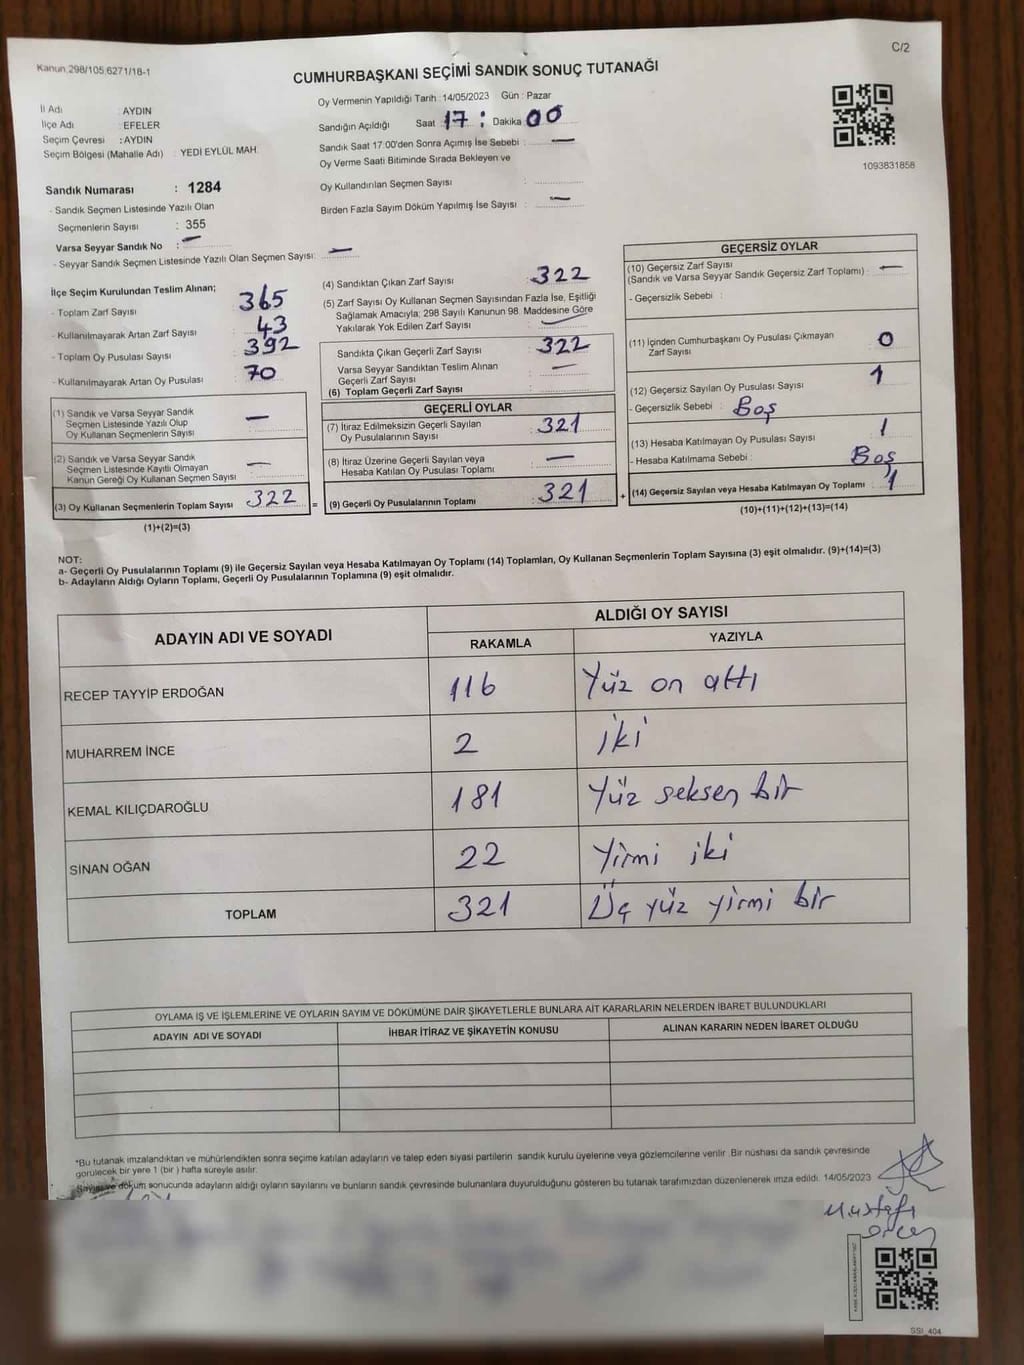 Kanun 298/105,6271/18-1
C/2
CUMHURBAŞKANI SEÇİMİ SANDIK SONUÇ TUTANAĞI
İl Adı : AYDIN
İlçe Adı : EFELER
Seçim Çevresi : AYDIN
Seçim Bölgesi (Mahalle Adı) : YEDİ EYLÜL MAH.
Sandık Numarası : 1284
- Sandık Seçmen Listesinde Yazılı Olan
Seçmenlerin Sayısı : 355
Varsa Seyyar Sandık No : —
- Seyyar Sandık Seçmen Listesinde Yazılı Olan Seçmen Sayısı: —
Oy Vermenin Yapıldığı Tarih : 14/05/2023 Gün : Pazar
Sandığın Açıldığı Saat 17 : Dakika 00
Sandık Saat 17:00'den Sonra Açımış İse Sebebi : —
Oy Verme Saati Bitiminde Sırada Bekleyen ve
Oy Kullandırılan Seçmen Sayısı :
Birden Fazla Sayım Döküm Yapılmış İse Sayısı : —
1093831858
İlçe Seçim Kurulundan Teslim Alınan;
- Toplam Zarf Sayısı : 365
- Kullanılmayarak Artan Zarf Sayısı : 43
- Toplam Oy Pusulası Sayısı : 392
- Kullanılmayarak Artan Oy Pusulası : 70
(1) Sandık ve Varsa Seyyar Sandık
Seçmen Listesinde Yazılı Olup
Oy Kullanan Seçmenlerin Sayısı : —
(2) Sandık ve Varsa Seyyar Sandık
Seçmen Listesinde Kayıtlı Olmayan
Kanun Gereği Oy Kullanan Seçmen Sayısı : —
(3) Oy Kullanan Seçmenlerin Toplam Sayısı : 322
(1)+(2)=(3)
(4) Sandıktan Çıkan Zarf Sayısı : 322
(5) Zarf Sayısı Oy Kullanan Seçmen Sayısından Fazla İse, Eşitliği
Sağlamak Amacıyla; 298 Sayılı Kanunun 98. Maddesine Göre
Yakılarak Yok Edilen Zarf Sayısı :
Sandıkta Çıkan Geçerli Zarf Sayısı : 322
Varsa Seyyar Sandıktan Teslim Alınan
Geçerli Zarf Sayısı : —
(6) Toplam Geçerli Zarf Sayısı :
GEÇERLİ OYLAR
(7) İtiraz Edilmeksizin Geçerli Sayılan
Oy Pusulalarının Sayısı : 321
(8) İtiraz Üzerine Geçerli Sayılan veya
Hesaba Katılan Oy Pusulası Toplamı : —
= (9) Geçerli Oy Pusulalarının Toplamı : 321 +
GEÇERSİZ OYLAR
(10) Geçersiz Zarf Sayısı
(Sandık ve Varsa Seyyar Sandık Geçersiz Zarf Toplamı) : —
- Geçersizlik Sebebi :
(11) İçinden Cumhurbaşkanı Oy Pusulası Çıkmayan
Zarf Sayısı : 0
(12) Geçersiz Sayılan Oy Pusulası Sayısı : 1
- Geçersizlik Sebebi : Boş
(13) Hesaba Katılmayan Oy Pusulası Sayısı : 1
- Hesaba Katılmama Sebebi : Boş
(14) Geçersiz Sayılan veya Hesaba Katılmayan Oy Toplamı : 1
(10)+(11)+(12)+(13)=(14)
NOT:
a- Geçerli Oy Pusulalarının Toplamı (9) ile Geçersiz Sayılan veya Hesaba Katılmayan Oy Toplamı (14) Toplamları, Oy Kullanan Seçmenlerin Toplam Sayısına (3) eşit olmalıdır. (9)+(14)=(3)
b- Adayların Aldığı Oyların Toplamı, Geçerli Oy Pusulalarının Toplamına (9) eşit olmalıdır.
ADAYIN ADI VE SOYADI
ALDIĞI OY SAYISI
RAKAMLA YAZIYLA
RECEP TAYYİP ERDOĞAN 116 Yüz on altı
MUHARREM İNCE 2 iki
KEMAL KILIÇDAROĞLU 181 Yüz seksen bir
SİNAN OĞAN 22 Yirmi iki
TOPLAM 321 Üç yüz yirmi bir
OYLAMA İŞ VE İŞLEMLERİNE VE OYLARIN SAYIM VE DÖKÜMÜNE DAİR ŞİKAYETLERLE BUNLARA AİT KARARLARIN NELERDEN İBARET BULUNDUKLARI
ADAYIN ADI VE SOYADI İHBAR İTİRAZ VE ŞİKAYETİN KONUSU ALINAN KARARIN NEDEN İBARET OLDUĞU
*Bu tutanak imzalandıktan ve mühürlendikten sonra seçime katılan adayların ve talep eden siyasi partilerin sandık kurulu üyelerine veya gözlemcilerine verilir .Bir nüshası da sandık çevresinde
görülecek bir yere 1 (bir ) hafta süreyle asılır.
Sayım ve döküm sonucunda adayların aldığı oyların sayılarını ve bunların sandık çevresinde bulunanlara duyurulduğunu gösteren bu tutanak tarafımızdan düzenlenerek imza edildi. 14/05/2023
Mustafa
SSI_404